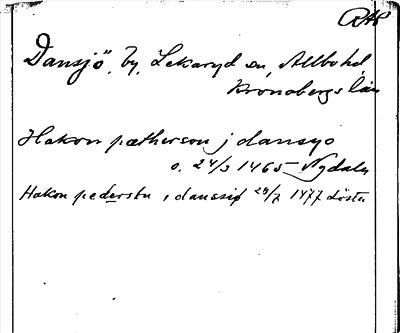 RAP
Dansjö, by, Lekaryd sn, Allbo hd,
Kronobergs län
Hakon pætherson j dansyo
o. 24/3 1465 Nydala
Hakon pederssn i danssiø 28/7 1477